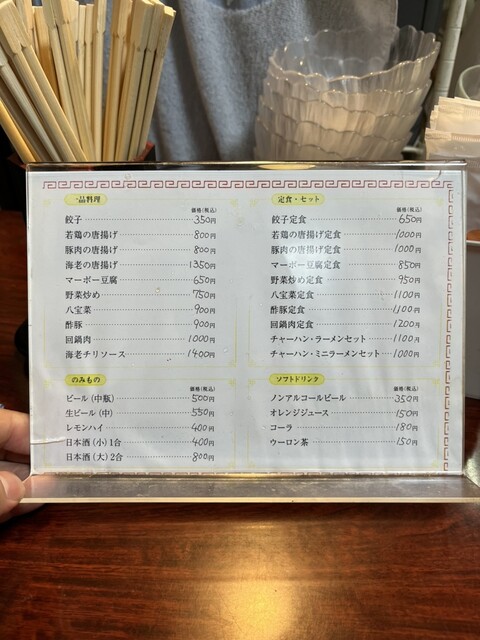 一品料理
価格(税込)
餃子 350円
若鶏の唐揚げ 800円
豚肉の唐揚げ 800円
海老の唐揚げ 1350円
マーボー豆腐 650円
野菜炒め 750円
八宝菜 900円
酢豚 900円
回鍋肉 1000円
海老チリソース 1400円
定食・セット
価格(税込)
餃子定食 650円
若鶏の唐揚げ定食 1000円
豚肉の唐揚げ定食 1000円
マーボー豆腐定食 850円
野菜炒め定食 950円
八宝菜定食 1100円
酢豚定食 1100円
回鍋肉定食 1200円
チャーハン・ラーメンセット 1100円
チャーハン・ミニラーメンセット 1000円
のみもの
価格(税込)
ビール(中瓶) 500円
生ビール(中) 550円
レモンハイ 400円
日本酒(小)1合 400円
日本酒(大)2合 800円
ソフトドリンク
価格(税込)
ノンアルコールビール 350円
オレンジジュース 150円
コーラ 180円
ウーロン茶 150円